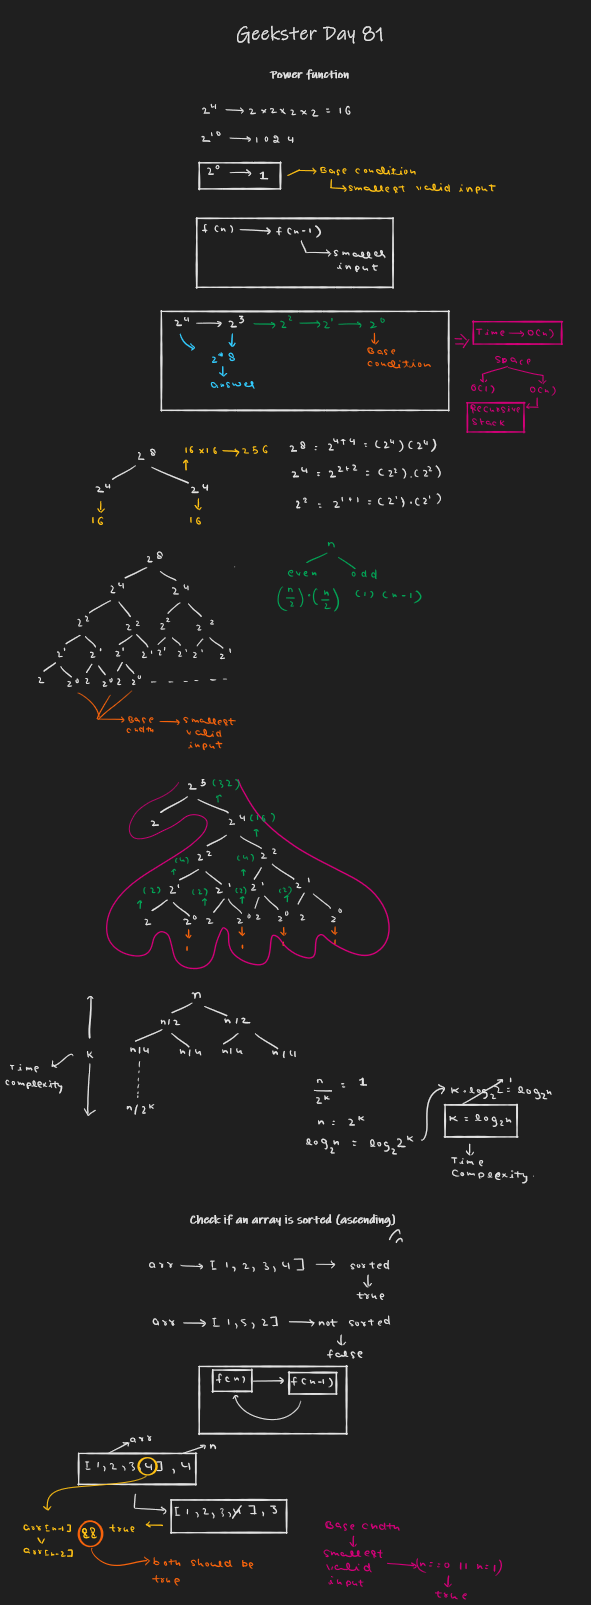 Geekster Day 81
Power function
2⁴ → 2 × 2 × 2 × 2 = 16
2¹⁰ → 1024
2⁰ → 1
Base condition
smallest valid input
f(n) → f(n-1)
smaller
input
2⁴ → 2³ → 2² → 2¹ → 2⁰
2 * 8
answer
Base
condition
⇒ Time → O(n)
space
O(1) O(n)
Recursive
stack
2⁸
16 × 16 → 256
2⁴ 2⁴
16 16
2⁸ = 2⁴⁺⁴ = (2⁴)(2⁴)
2⁴ = 2²⁺² = (2²).(2²)
2² = 2¹⁺¹ = (2¹).(2¹)
n
even odd
(n/2).(n/2) (1) (n-1)
2⁸
2⁴ 2⁴
2² 2² 2² 2²
2¹ 2¹ 2¹ 2¹ 2¹ 2¹ 2¹
2 2⁰ 2 2⁰ 2 2⁰ - - - - - -
Base → smallest
cndtn valid
input
2⁵ (32)
2 2⁴ (16)
(4) 2² (4) 2²
(2) 2¹ (2) 2¹ (2) 2¹ (2) 2¹
2 2⁰ 2 2⁰ 2 2⁰ 2 2⁰
1 1 1 1
n
n/2 n/2
n/4 n/4 n/4 n/4
n/2ᵏ
K
Time
complexity
n/2ᵏ = 1
n = 2ᵏ
log₂n = log₂2ᵏ
K.log₂2 = log₂n
1
K = log₂n
Time
Complexity.
Check if an array is sorted (ascending)
arr → [1, 2, 3, 4] → sorted
true
arr → [1, 5, 2] → not sorted
false
f(n) → f(n-1)
arr n
[1, 2, 3, 4], 4
[1, 2, 3, 4], 3
arr[n-1] && true
>
arr[n-2]
both should be
true
Base cndtn
smallest
valid
input
(n==0 || n=1)
true